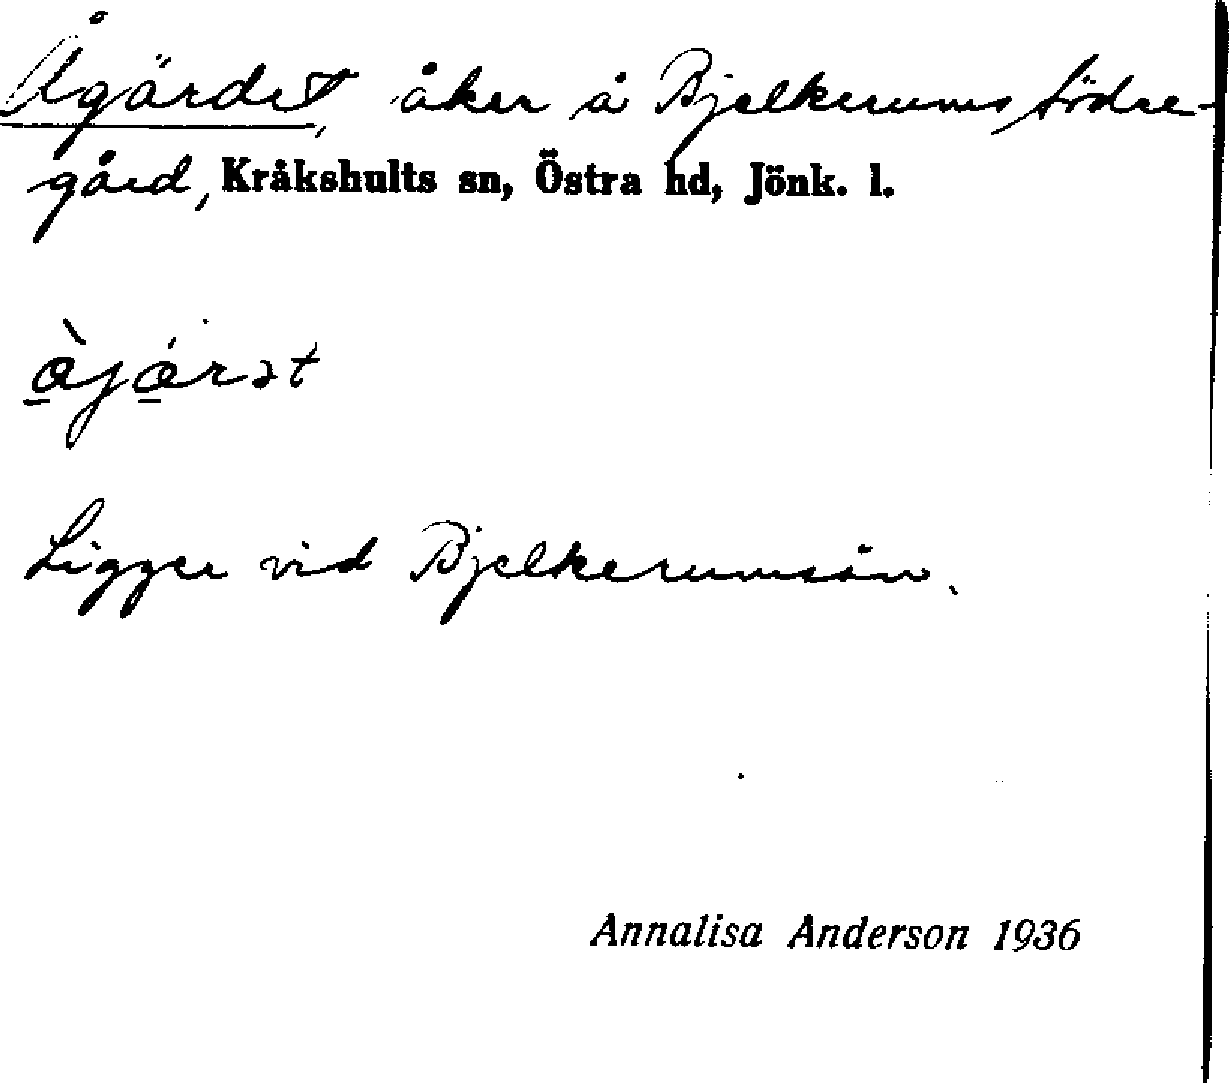 Ågärdet, åker å Bjelkerums södre-
gård, Kråkshults sn, Östra hd, Jönk. l.
Ligger vid Bjelkerumsån.
Annalisa Anderson 1936